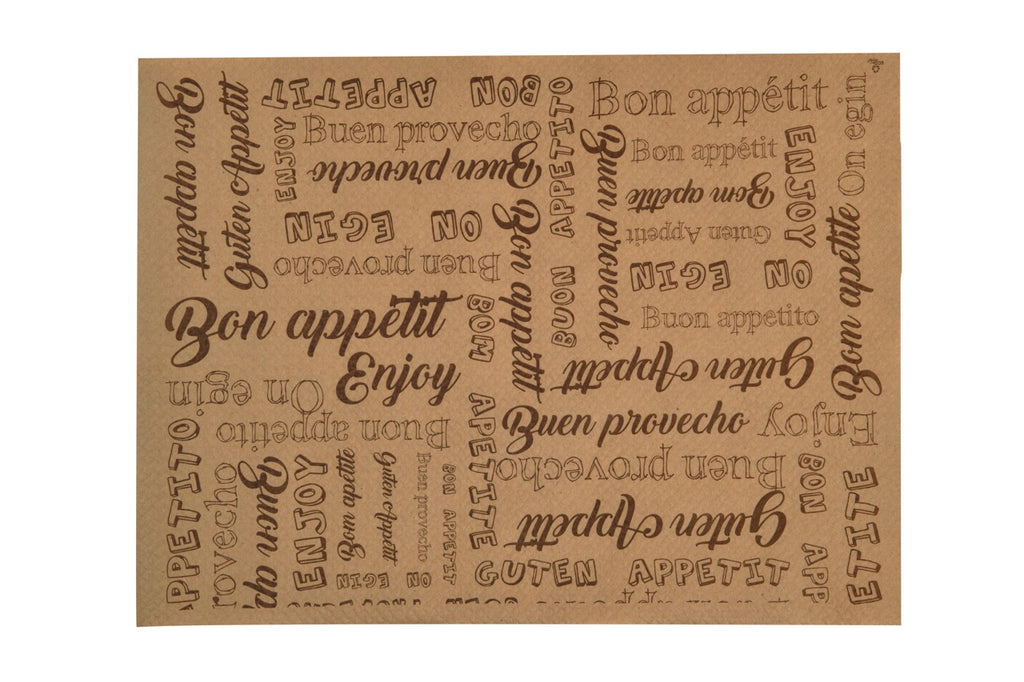 Bon appétit
Guten Appetit
BON APPETIT
ENJOY
Buen provecho
Buen provecho
ON EGIN
Buen provecho
Bon appétit
BUON APPETITO
Bon appétit
Buen provecho
Bon appétit
Bom apetite
Guten Appetit
ON EGIN
Buon appetito
ENJOY
On egin
Bom apetite
Bon appétit
Enjoy
BOM APETITE
Guten Appetit
On egin
Buon appetito
Buen provecho
Enjoy
Buen provecho
Guten Appetit
GUTEN APPETIT
BON APP
ETITE
PPETITO
rovecho
Buen
ENJOY
Bom apetite
Guten Appetit
Buen provecho
BON APPETIT
ON EGIN